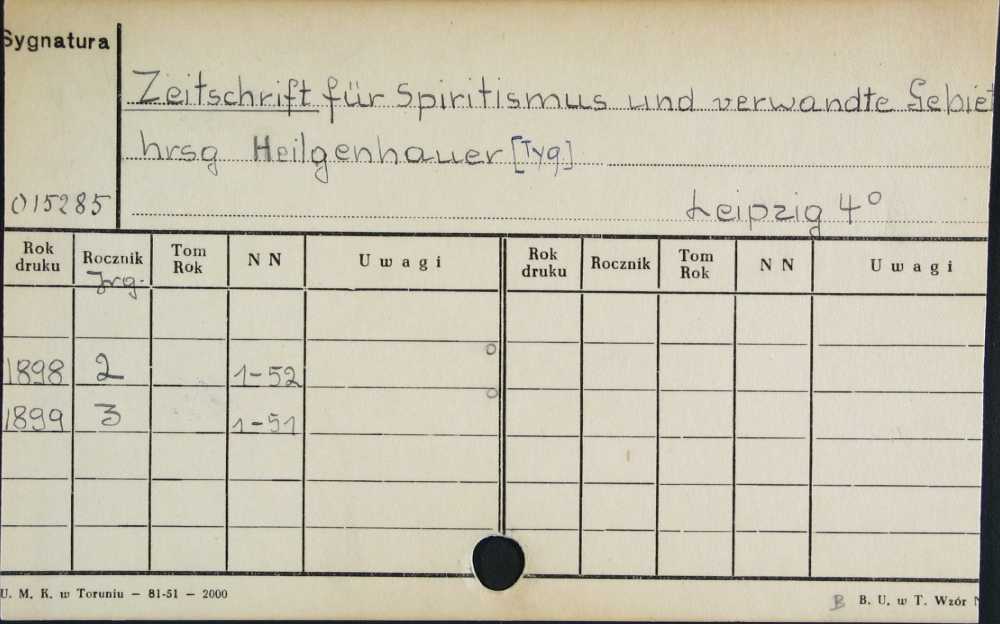 Sygnatura
Zeitschrift für Spiritismus und verwandte Gebiet
hrsg Heilgenhauer [Tyg.]
015285
Leipzig 4°
Rok druku Rocznik Tom Rok N N Uwagi Rok druku Rocznik Tom Rok N N Uwagi
Jrg.
1898 2 1-52
1899 3 1-51
U. M. K. w Toruniu — 81-51 — 2000
B B. U. w T. Wzór